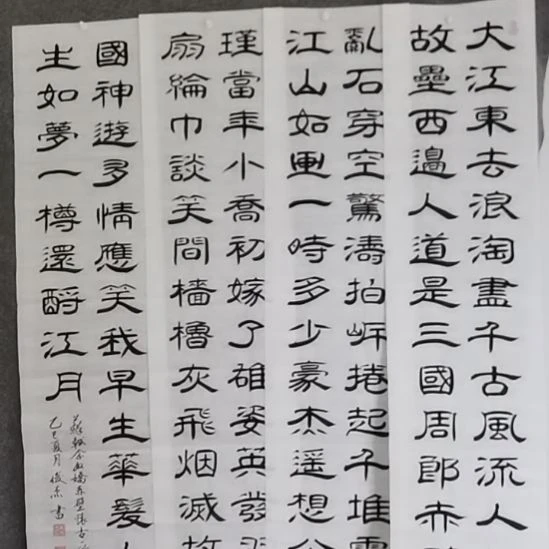 大江東去浪淘盡千古風流人
故壘西邊人道是三國周郎赤
亂石穿空驚濤拍岍捲起千堆
江山如画一時多少豪杰遥想公
瑾當年小喬初嫁了雄姿英發
扇綸巾談笑間檣櫓灰飛烟滅故
國神遊多情應笑我早生華髮人
生如夢一樽還酹江月
蘇軾念奴嬌赤壁懷古
乙巳夏月俊 書